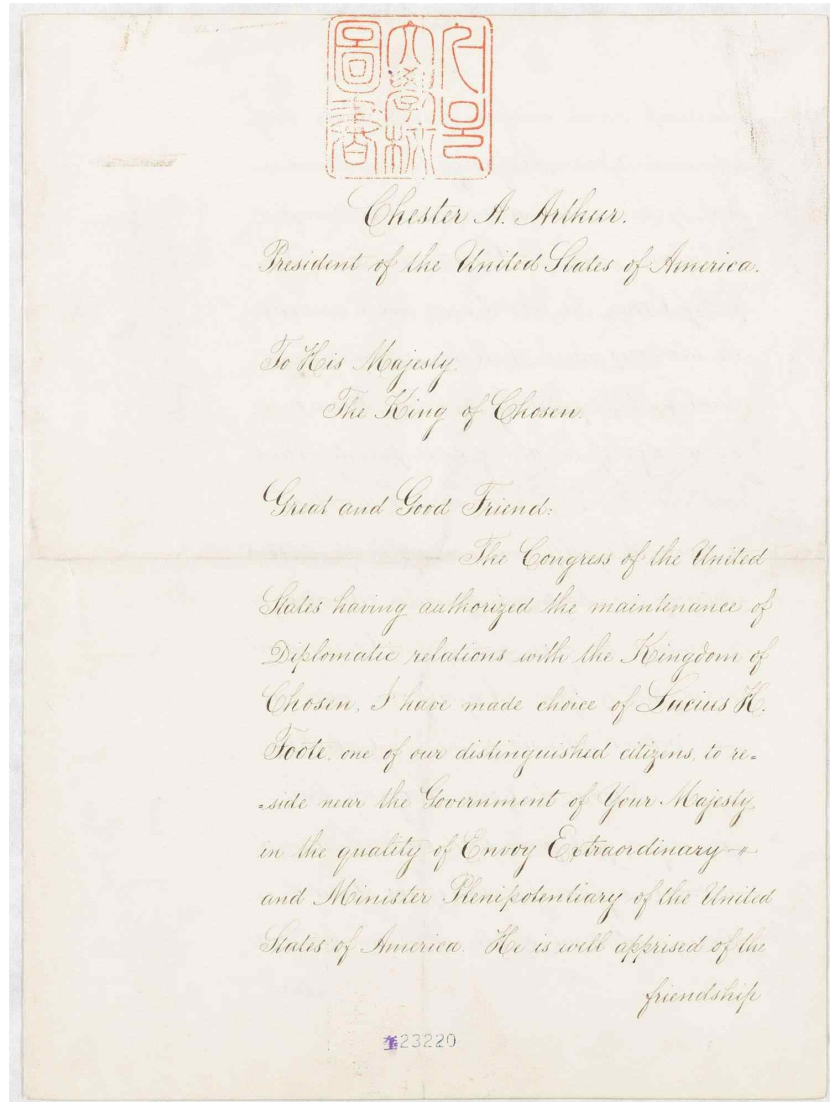 서울
大學校
圖書
Chester A. Arthur.
President of the United States of America.
To His Majesty
The King of Chosen.
Great and Good Friend:
The Congress of the United
States having authorized the maintenance of
Diplomatic relations with the Kingdom of
Chosen, I have made choice of Lucius H.
Foote, one of our distinguished citizens, to re=
=side near the Government of Your Majesty
in the quality of Envoy Extraordinary
and Minister Plenipotentiary of the United
States of America. He is well apprised of the
friendship
奎23220